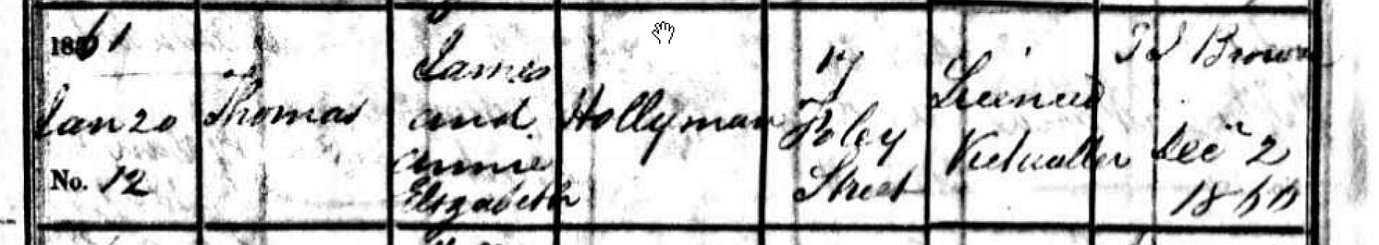 1861
Jan 20
No. 12
Thomas
James
and
Annie
Elizabeth
Hollyman
17
Foley
Street
Licenced
Victualler
Brown
Dec 2
1860